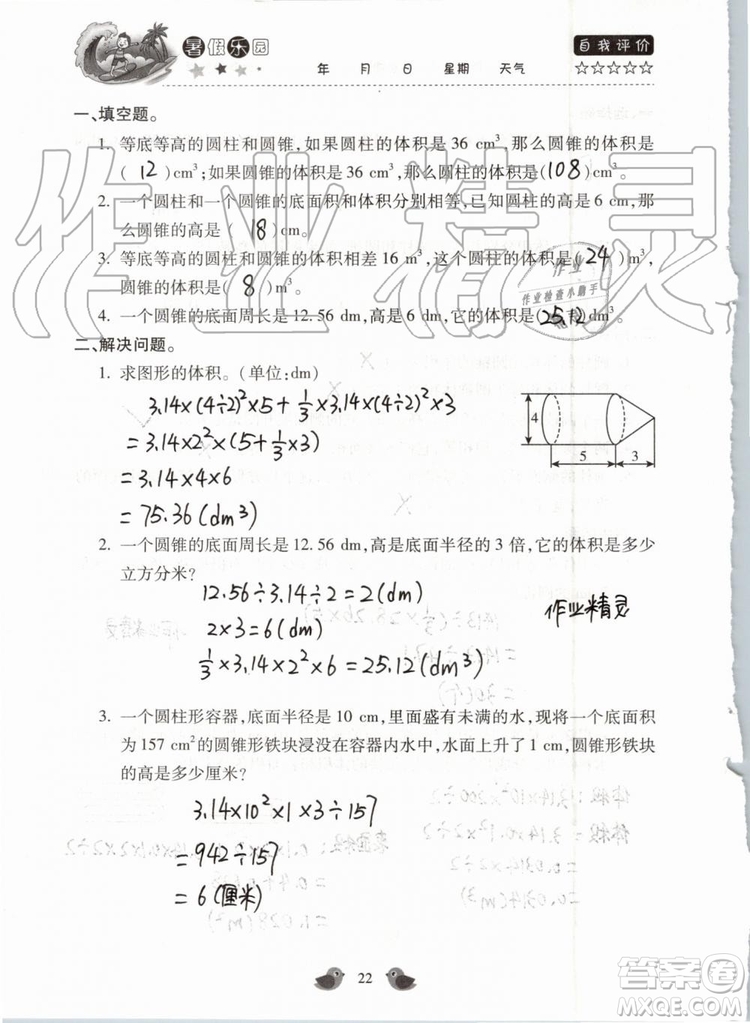 暑假乐园
自我评价
年 月 日 星期 天气
☆☆☆☆☆
一、填空题。
1. 等底等高的圆柱和圆锥,如果圆柱的体积是 36 cm³,那么圆锥的体积是
( 12 )cm³;如果圆锥的体积是 36 cm³,那么圆柱的体积是(108)cm³。
2. 一个圆柱和一个圆锥的底面积和体积分别相等,已知圆柱的高是 6 cm,那
么圆锥的高是( 18 )cm。
3. 等底等高的圆柱和圆锥的体积相差 16 m³,这个圆柱的体积是( 24 )m³,
圆锥的体积是( 8 )m³。
4. 一个圆锥的底面周长是 12.56 dm,高是 6 dm,它的体积是(25.12)dm³。
作业
作业检查小助手
二、解决问题。
1. 求图形的体积。(单位:dm)
3.14×(4÷2)²×5+1/3×3.14×(4÷2)²×3
=3.14×2²×(5+1/3×3)
=3.14×4×6
=75.36(dm³)
4
5
3
2. 一个圆锥的底面周长是 12.56 dm,高是底面半径的 3 倍,它的体积是多少
立方分米?
12.56÷3.14÷2=2(dm)
2×3=6(dm)
1/3×3.14×2²×6=25.12(dm³)
作业精灵
3. 一个圆柱形容器,底面半径是 10 cm,里面盛有未满的水,现将一个底面积
为 157 cm²的圆锥形铁块浸没在容器内水中,水面上升了 1 cm,圆锥形铁块
的高是多少厘米?
3.14×10²×1×3÷157
=942÷157
=6(厘米)
22
作业精灵
答案圈
MXQE.COM